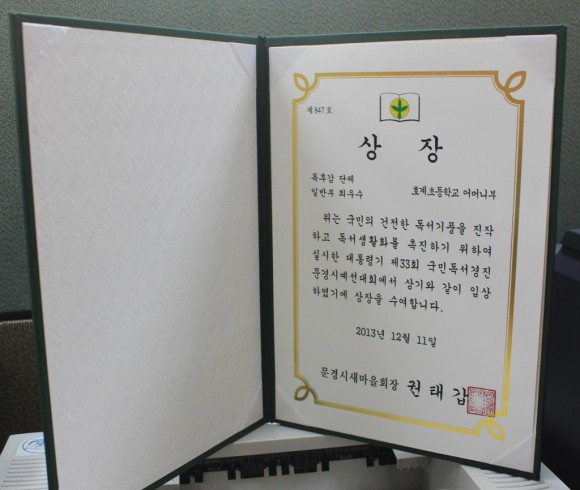 제 847 호
상 장
독후감 단체
일반부 최우수 호계초등학교 어머니부
위는 국민의 건전한 독서기풍을 진작
하고 독서생활화를 촉진하기 위하여
실시한 대통령기 제33회 국민독서경진
문경시예선대회에서 상기와 같이 입상
하였기에 상장을 수여합니다.
2013년 12월 11일
문경시새마을회장 권 태 갑